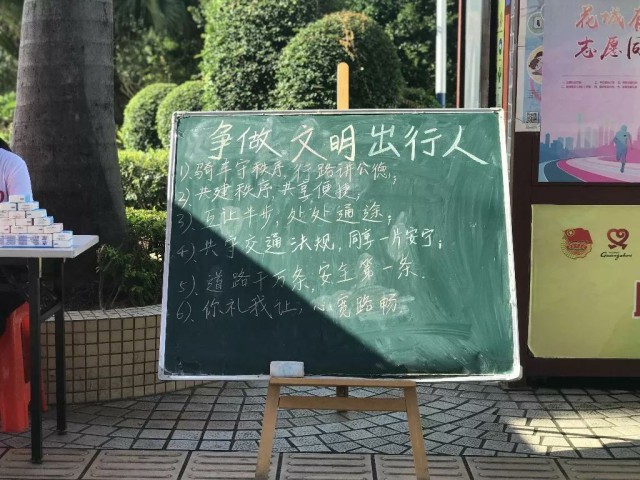 争做文明出行人
1).骑车守秩序,行路讲公德;
2).共建秩序,共享便捷;
3).互让半步,处处通途;
4).共守交通法规,同享一片安宁;
5).道路千万条,安全第一条.
6).你礼我让,心宽路畅
花城
志愿
Guangzhou